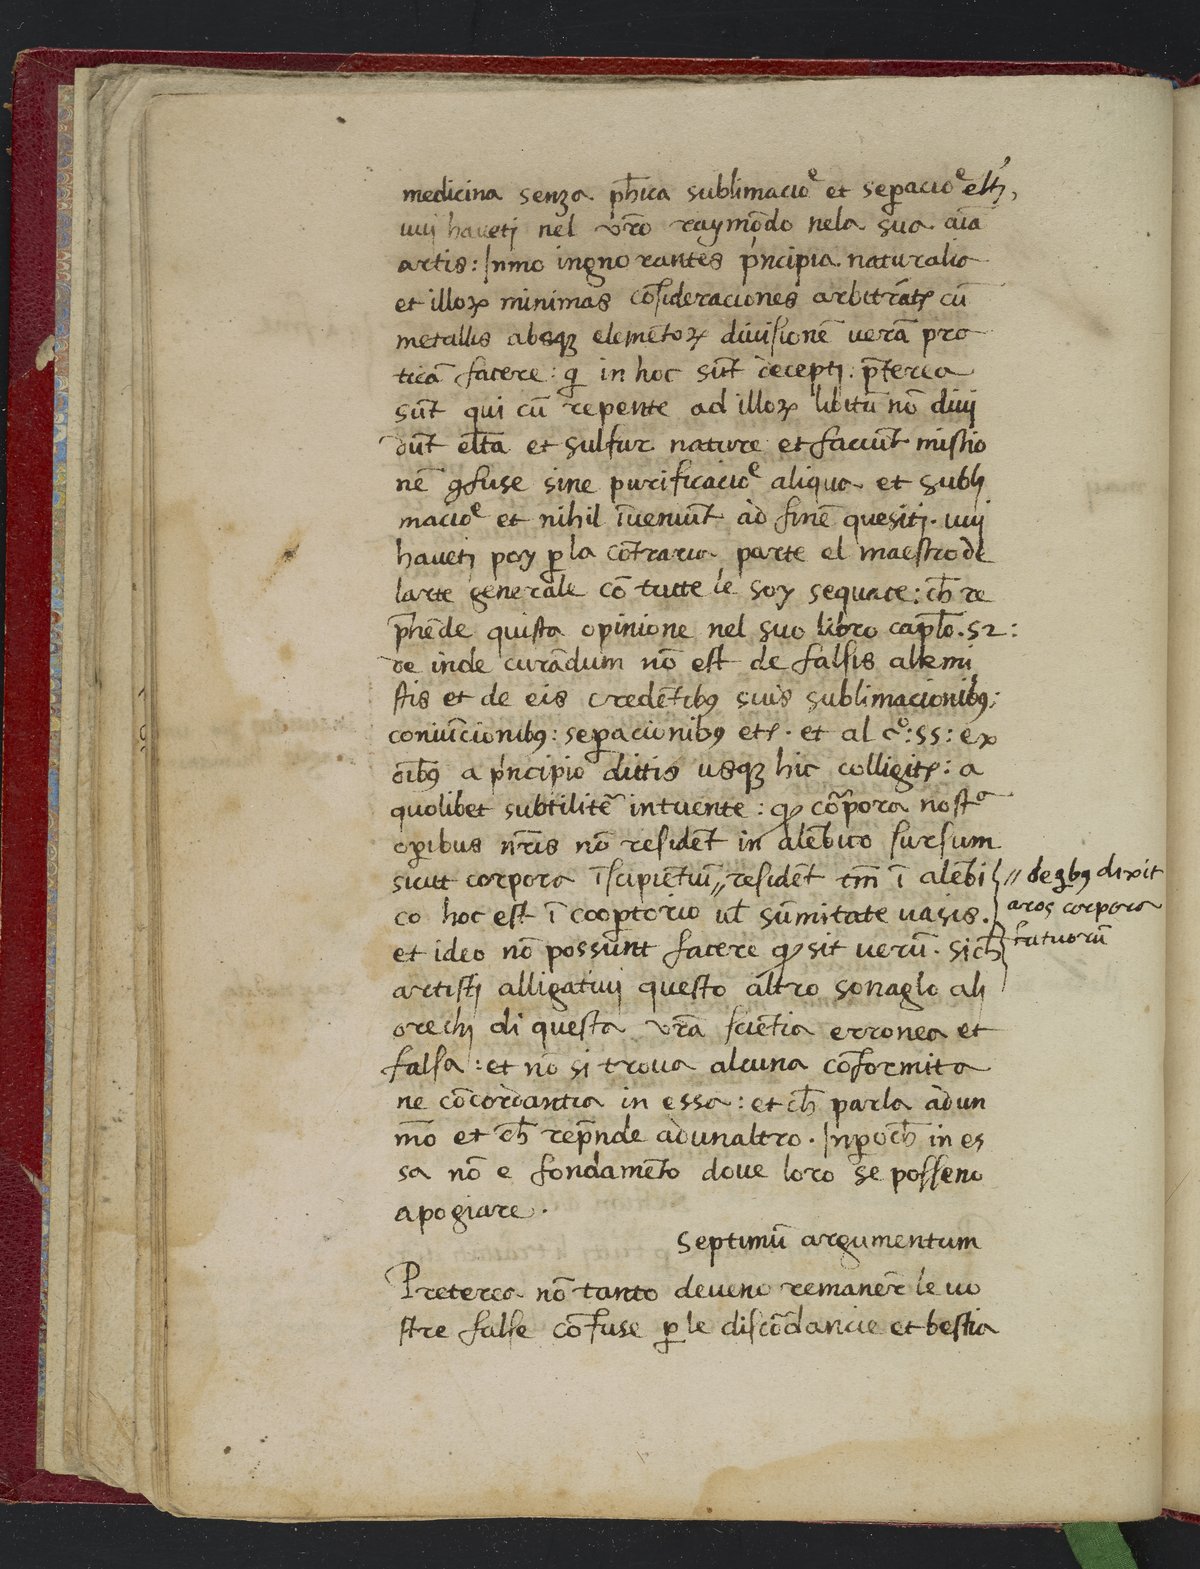 medicina senza ph̄ica sublimacioᵉ et seꝑacioᵉ elt̄j,
uuj havetj nel vr̄o raymōdo nela sua aīa
artis: Inmo ingnorantes pⁱncipia naturalia
et illoꝝ minimas cōsideraciones arbitrāt᷑ cū
metallis absqꝫ elemētoꝝ diuisionē uerā pra
ticā facere: ꝙ in hoc sūt deceptj. p̄terea
sūt qui cū repente ad illoꝝ libitū nō diuj
dūt elt̄a et sulfur nature et faciūt mistio
nē ꝯfuse sine purificacioᵉ aliqua et subli
macioᵉ et nihil īueniūt ad finē quesitj. uuj
havetj poy ꝑ la cōtraria parte el maestro de
larte generale cō tutte le soy sequace: ch̄ re
p̄hēde quista opinione nel suo libro cap̄lo. 52:
de inde curādum nō est de falsis alkemi
stis et de eis credētibꝰ suis sublimacionibꝰ:
coniūcionibꝰ: seꝑacionibꝰ etc̄. et al cᵒ: 55: ex
oībꝰ a pⁱncipio dittis usqꝫ hic colligit᷑: a
quolibet subtilitē intuente: ꝙ cōrpora nostᵃ
oꝑibus nr̄is nō residēt in alēbico sursum
sicut corpora īscipiētiū,, residēt tm̄ ī alēbi
co hoc est ī cooꝑtorio ul̄ sūmitate uasis.
et ideo nō possūnt facere ꝙ sit uerū. sich̄
artistj alligatiuj questo altro sonaglo ali
orechj di questa vr̄a sciētia erronea et
falsa: et nō si troua alcuna cōformita
ne cōcordantia in essa: et ch̄ parla ad un
mō et ch̄ rep̄nde ad unaltro. Inꝑoch̄ in es
sa nō e fondamēto dove loro se posseno
apogiare.
Septimū argumentum
Preterea nō tanto deveno remaner̄ le uo
stre false cōfuse ꝑ le discōdancie et bestia
// de qͥbꝰ dixit
aros corpora
fatuorū